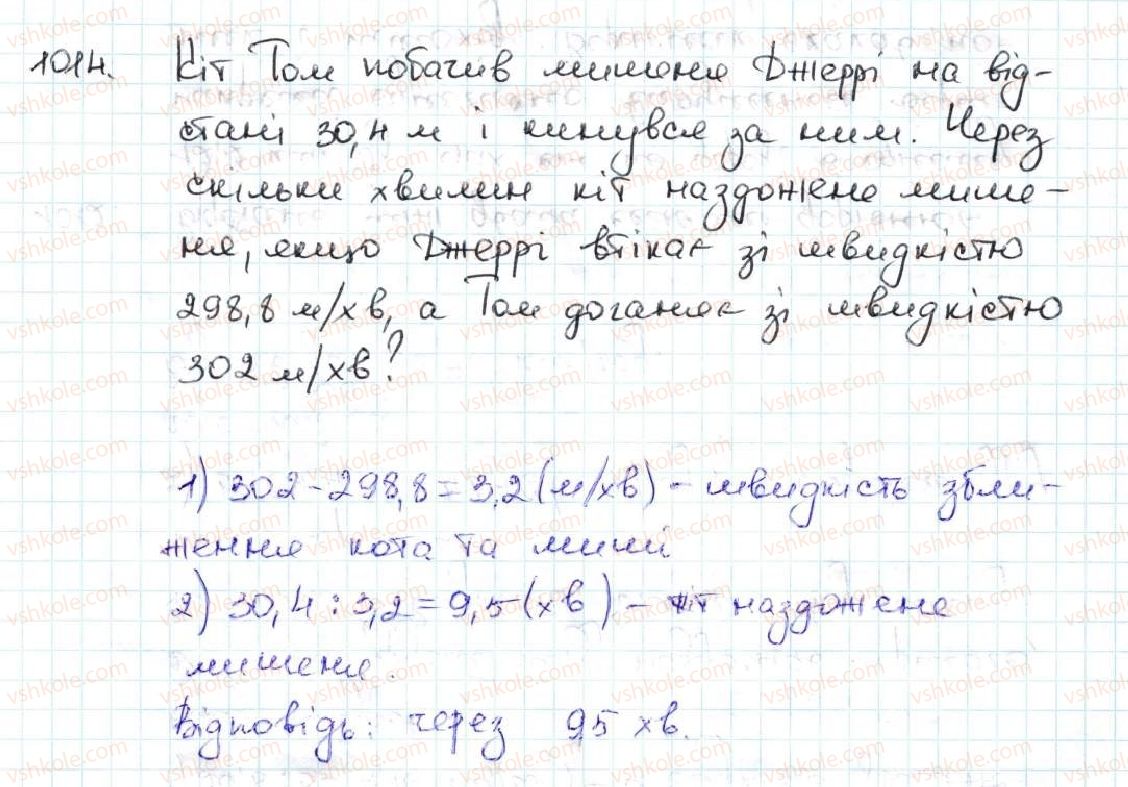 1014. Кіт Том побачив мишеня Джеррі на від-
стані 30,4 м і кинувся за ним. Через
скільки хвилин кіт наздожене мише-
ня, якщо Джеррі втікає зі швидкістю
298,8 м/хв, а Том доганяє зі швидкістю
302 м/хв?
1) 302-298,8=3,2(м/хв) - швидкість збли-
ження кота та миші
2) 30,4:3,2=9,5(хв) - кіт наздожене
мишеня.
Відповідь: через 9,5 хв.